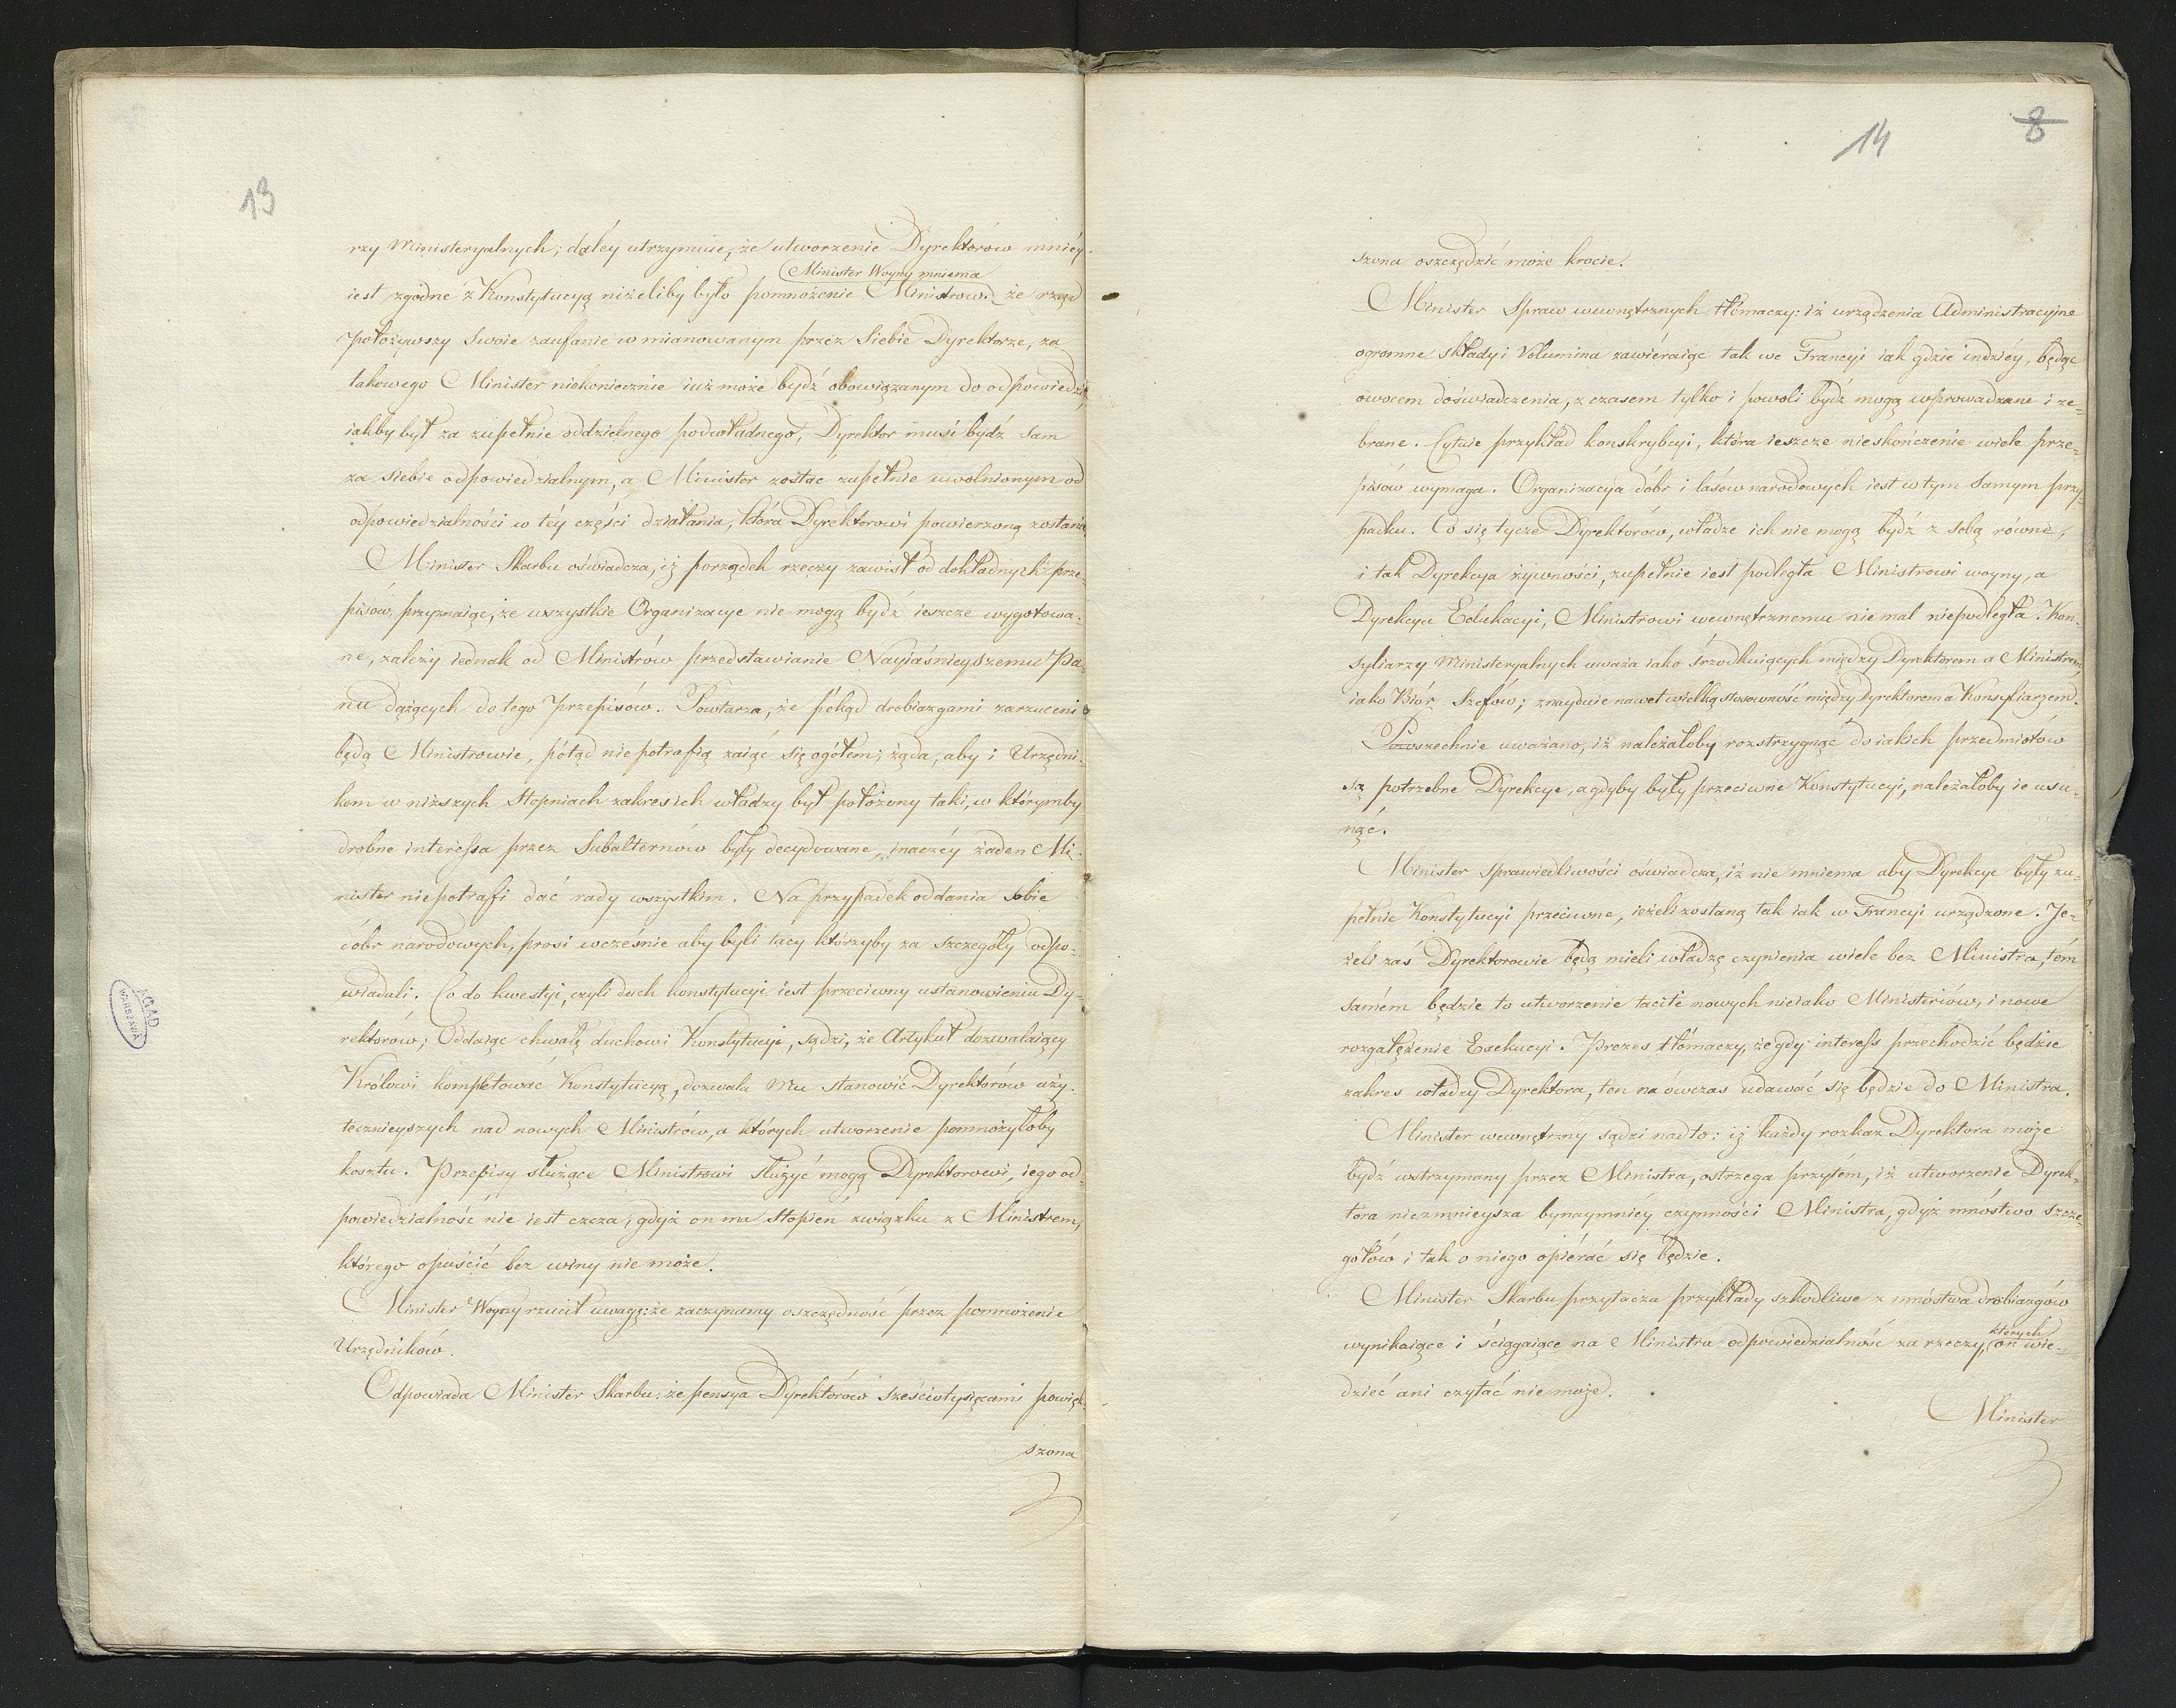 13
rzy Ministeryalnych; daléy utrzymuie, że utworzenie Dyrektorów mniéy
Minister Woyny mniema
iest zgodne z Konstytucyą niżeliby było pomnożenie Ministrow. że rząd
położywszy swoie zaufanie w mianowanym przez Siebie Dyrektorze, za
takowego Minister niekoniecznie iuż może bydź obowiązanym do odpowiedzi,
iakby był za zupełnie oddzielnego podwładnego, Dyrektor musi bydź sam
za siebie odpowiedzialnym, a Minister zostać zupełnie uwolnionym od
odpowiedzialności w téy części działania, która Dyrektorowi powierzoną zostanie
Minister Skarbu oświadcza, iż porządek rzeczy zawisł od dokładnych prze
pisów, przyznaiąc, że wszystkie Organizacye nie mogą bydź ieszcze wygotowa-
ne, zależy iednak od Ministrów przedstawianie Nayiaśnieyszemu Pa-
nu dążących do tego Przepisów. Powtarza, że pókąd drobiazgami zarzuceni
będą Ministrowie, pótąd niepotrafią zaiąć się ogółem; żąda, aby i Urzędni-
kom w niższych Stopniach zakres ich władzy był położony taki, w którymby
drobne interessa przez Subalternów były decydowane, inaczéy żaden Mi-
nister niepotrafi dać rady wszystkim. Na przypadek oddania sobie
dóbr narodowych, prosi wcześnie aby byli tacy którzyby za szczegóły odpo-
wiadali. Co do kwestyi, czyli duch konstytucyi iest przeciwny ustanowieniu Dy-
rektorów; Oddaiąc chwałę duchowi Konstytucyi, sądzi, że Artykuł dozwalaiący
Królowi kompletować Konstytucyą, dozwala Mu stanowić Dyrektorów uży-
tecznieyszych nad nowych Ministrów, a których utworzenie pomnożyłoby
kosztu. Przepisy służące Ministrowi służyć mogą Dyrektorowi, iego od-
powiedzialność nie iest czcza, gdyż on ma stopień związku z Ministrem,
którego opuścić bez winy nie może.
Minister Woyny rzucił uwagę: że zaczynamy oszczędność przez pomnożenie
Urzędników.
Odpowiada Minister Skarbu: że pensya Dyrektórów sześciotysięcami powięk-
szona
AGAD
WARSZAWA
14
8
szona oszczędzić może krocie.
Minister Spraw wewnętrznych tłómaczy: iż urządzenia Administracyjne
ogromne składy i Volumina zawieraiąc tak we Francyi iak gdzie indziéy, będąc
owocem doświadczenia, z czasem tylko i powoli bydź mogą wprowadzane i ze-
brane. Cytuie przykład konskrybcyi, która ieszcze nieskończenie wiele prze-
pisów wymaga. Organizacya dóbr i lasów narodowych iest w tym samym przy-
padku. Co się tycze Dyrektorów, władze ich nie mogą bydź z sobą równe,
i tak Dyrekcya żywności, zupełnie iest podległa Ministrowi woyny, a
Dyrekcya Edukacyi, Ministrowi wewnętrznemu nie mal niepodległa. Kon-
syliarzy Ministeryalnych uważa iako śrzodkuiących między Dyrektorem a Ministrem,
iako Biór Szefów; znayduie nawet wielką stosowność między Dyrektorem a Konsyliarzem.
Powszechnie uważano, iż należałoby rozstrzygnąć do iakich przedmiotów
są potrzebne Dyrekcye, a gdyby były przeciwne Konstytucyi, należałoby ie usu-
nąć.
Minister sprawiedliwości oświadcza, iż nie mniema aby Dyrekcye były zu-
pełnie Konstytucyi przeciwne, ieżeli zostaną tak iak w Francyi urządzone. Je-
żeli zaś Dyrektorowie będą mieli władzę czynienia wiele bez Ministra, tém
samém będzie to utworzenie tacite nowych nieiako Ministrów, i nowe
rozgałężenie Exekucyi. Prezes tłómaczy, że gdy interess przechodzić będzie
zakres władzy Dyrektora, ten na ówczas udawać się będzie do Ministra.
Minister wewnętrzny sądzi nadto: iż każdy rozkaz Dyrektora może
bydź wstrzymany przez Ministra, ostrzega przytém, iż utworzenie Dyrek-
tora niezmnieysza bynaymniéy czynności Ministra, gdyż mnóstwo szcze-
gółów i tak o niego opiérać się będzie.
Minister Skarbu przytacza przykłady szkodliwe z mnóstwa drobiazgów
których
wynikaiące i ściągaiące na Ministra odpowiedzialność za rzeczy, on wie-
dzieć ani czytać nie może.
Minister